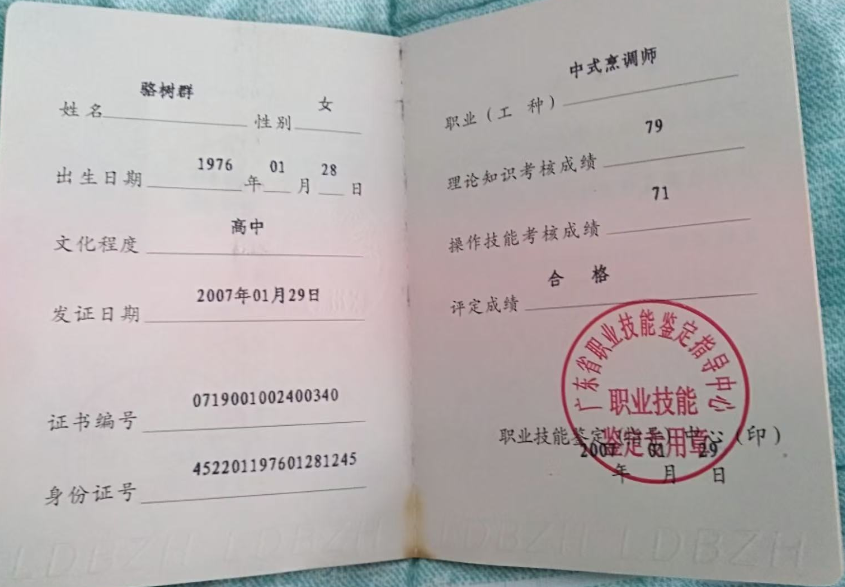 姓名 骆树群 性别 女
出生日期 1976 年 01 月 28 日
文化程度 高中
发证日期 2007年01月29日
证书编号 0719001002400340
身份证号 452201197601281245
LDBZH LDBZH
职业（工 种） 中式烹调师
理论知识考核成绩 79
操作技能考核成绩 71
评定成绩 合 格
广东省职业技能鉴定指导中心
职业技能
鉴定专用章
职业技能鉴定（指导）中心（印）
2007 01 29
年 月 日
LDBZH LDBZH